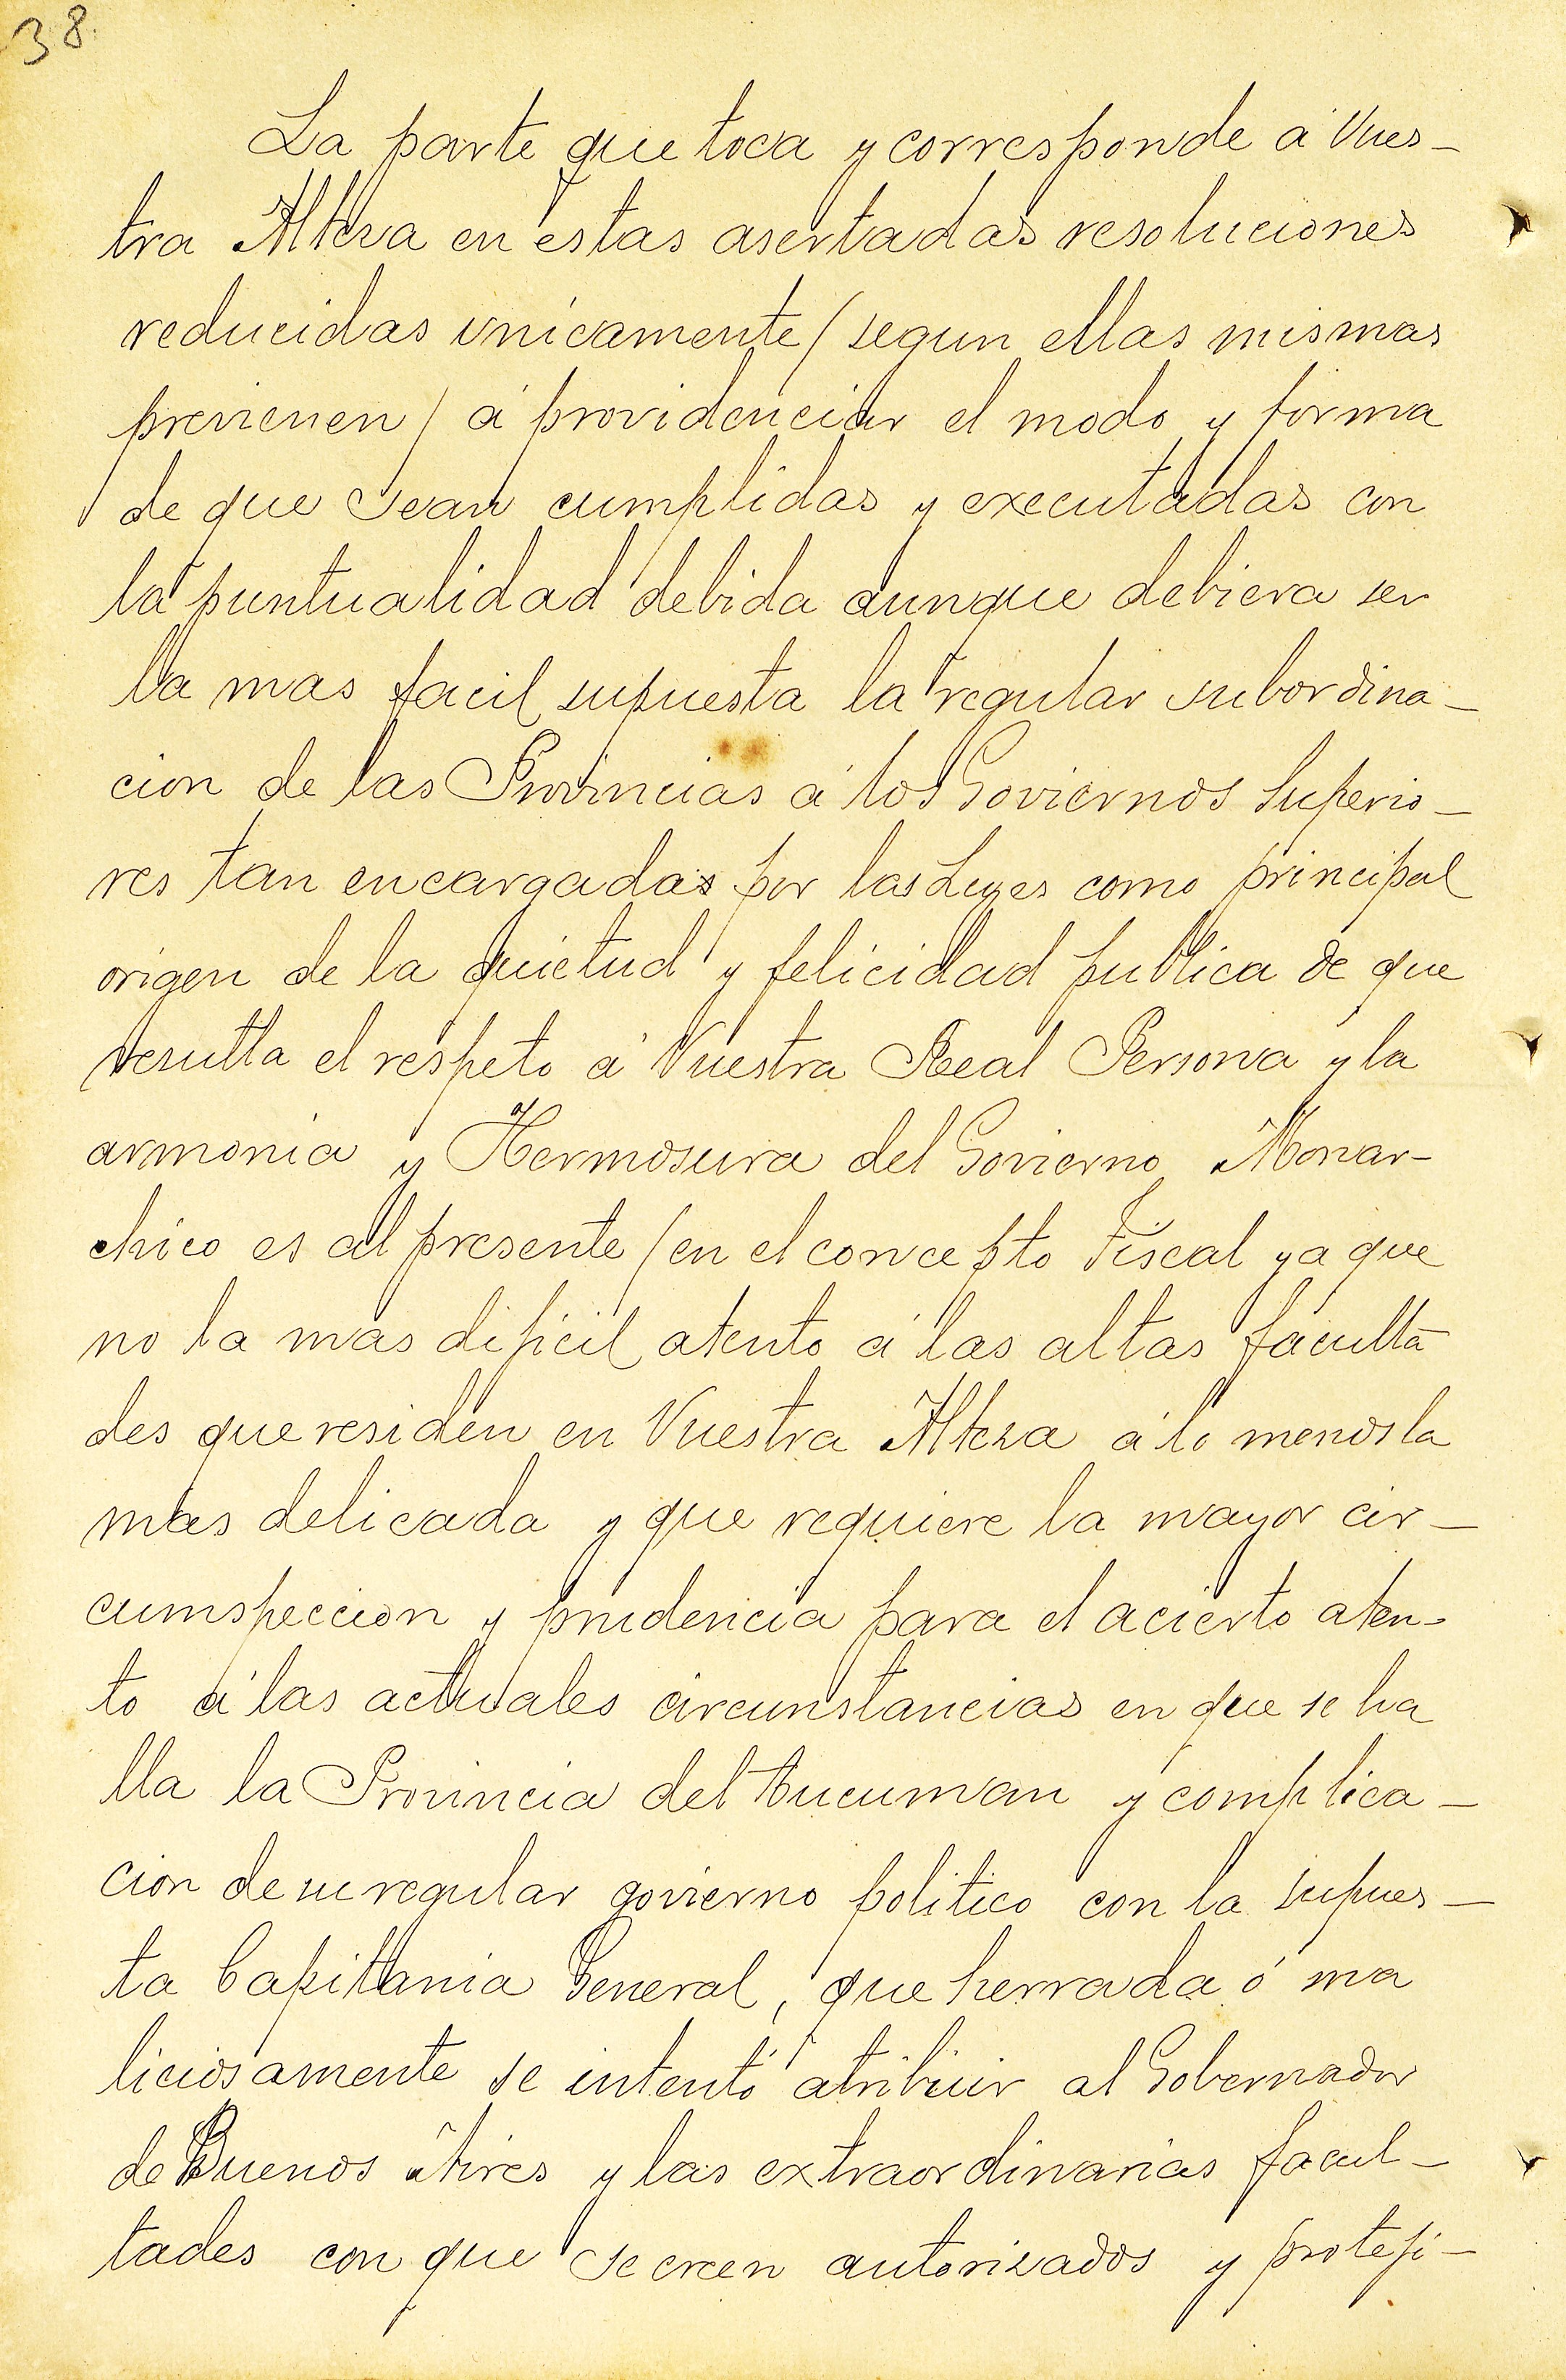 38.
La parte que toca y corresponde á Vues-
tra Alteza en estas asertadas resoluciones
reducidas vnicamente (segun ellas mismas
previenen) á providenciar el modo y forma
de que sean cumplidas y executadas con
la puntualidad debida aunque debiera ser
la mas facil supuesta la regular subordina-
cion de las Provincias á los Goviernos Superio-
res tan encargadas por las Leyes como principal
origen de la quietud y felicidad publica de que
resulta el respeto á Vuestra Real Persona y la
armonia y Hermosura del Govierno Monar-
chico es al presente (en el concepto Fiscal ya que
no la mas dificil atento á las altas faculta
des que residen en Vuestra Alteza á lo menos la
mas delicada y que requiere la mayor cir-
cumspeccion y prudencia para el acierto aten-
to á las actuales circunstancias en que se ha
lla la Provincia del Tucuman y complica-
cion de su regular govierno politico con la supues-
ta Capitania General, que herrada ó ma
liciosamente se intentó atribuir al Gobernador
de Buenos Aires y las extraordinarias facul-
tades con que se creen autorizados y proteji-